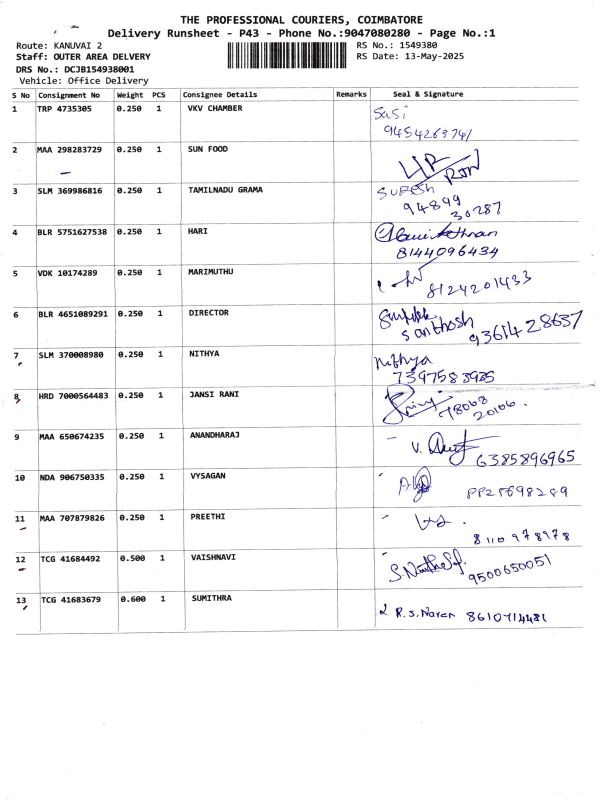 THE PROFESSIONAL COURIERS, COIMBATORE
Delivery Runsheet - P43 - Phone No.:9047080280 - Page No.:1
Route: KANUVAI 2
RS No.: 1549380
Staff: OUTER AREA DELIVERY
RS Date: 13-May-2025
DRS No.: DCJB154938001
Vehicle: Office Delivery
S No Consignment No Weight PCS Consignee Details Remarks Seal & Signature
1 TRP 4735305 0.250 1 VKV CHAMBER Sasi
9454263741
2 MAA 298283729 0.250 1 SUN FOOD
3 SLM 369986816 0.250 1 TAMILNADU GRAMA SURESH
94899
30287
4 BLR 5751627538 0.250 1 HARI
8144096434
5 VDK 10174289 0.250 1 MARIMUTHU 8124201433
6 BLR 4651089291 0.250 1 DIRECTOR
Santhosh 9361428637
7 SLM 370008980 0.250 1 NITHYA Nithya
7397583935
8 HRD 7000564483 0.250 1 JANSI RANI
78068
20106.
9 MAA 650674235 0.250 1 ANANDHARAJ V.
6385896965
10 NDA 906750335 0.250 1 VYSAGAN
11 MAA 707879826 0.250 1 PREETHI
8110978978
12 TCG 41684492 0.500 1 VAISHNAVI
9500650051
13 TCG 41683679 0.600 1 SUMITHRA R.S.Naren 8610714481